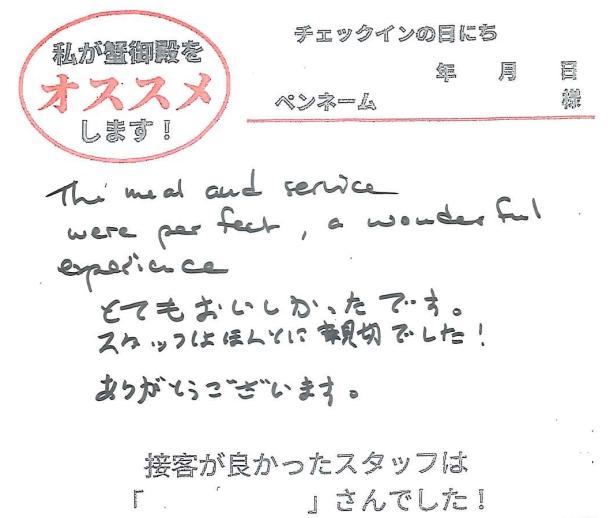 私が蟹御殿を
オススメ
します！
チェックインの日にち
年 月 日
ペンネーム 様
The meal and service
were perfect, a wonderful
experience
とてもおいしかったです。
スタッフはほんとに親切でした！
ありがとうございます。
接客が良かったスタッフは
「 」さんでした！